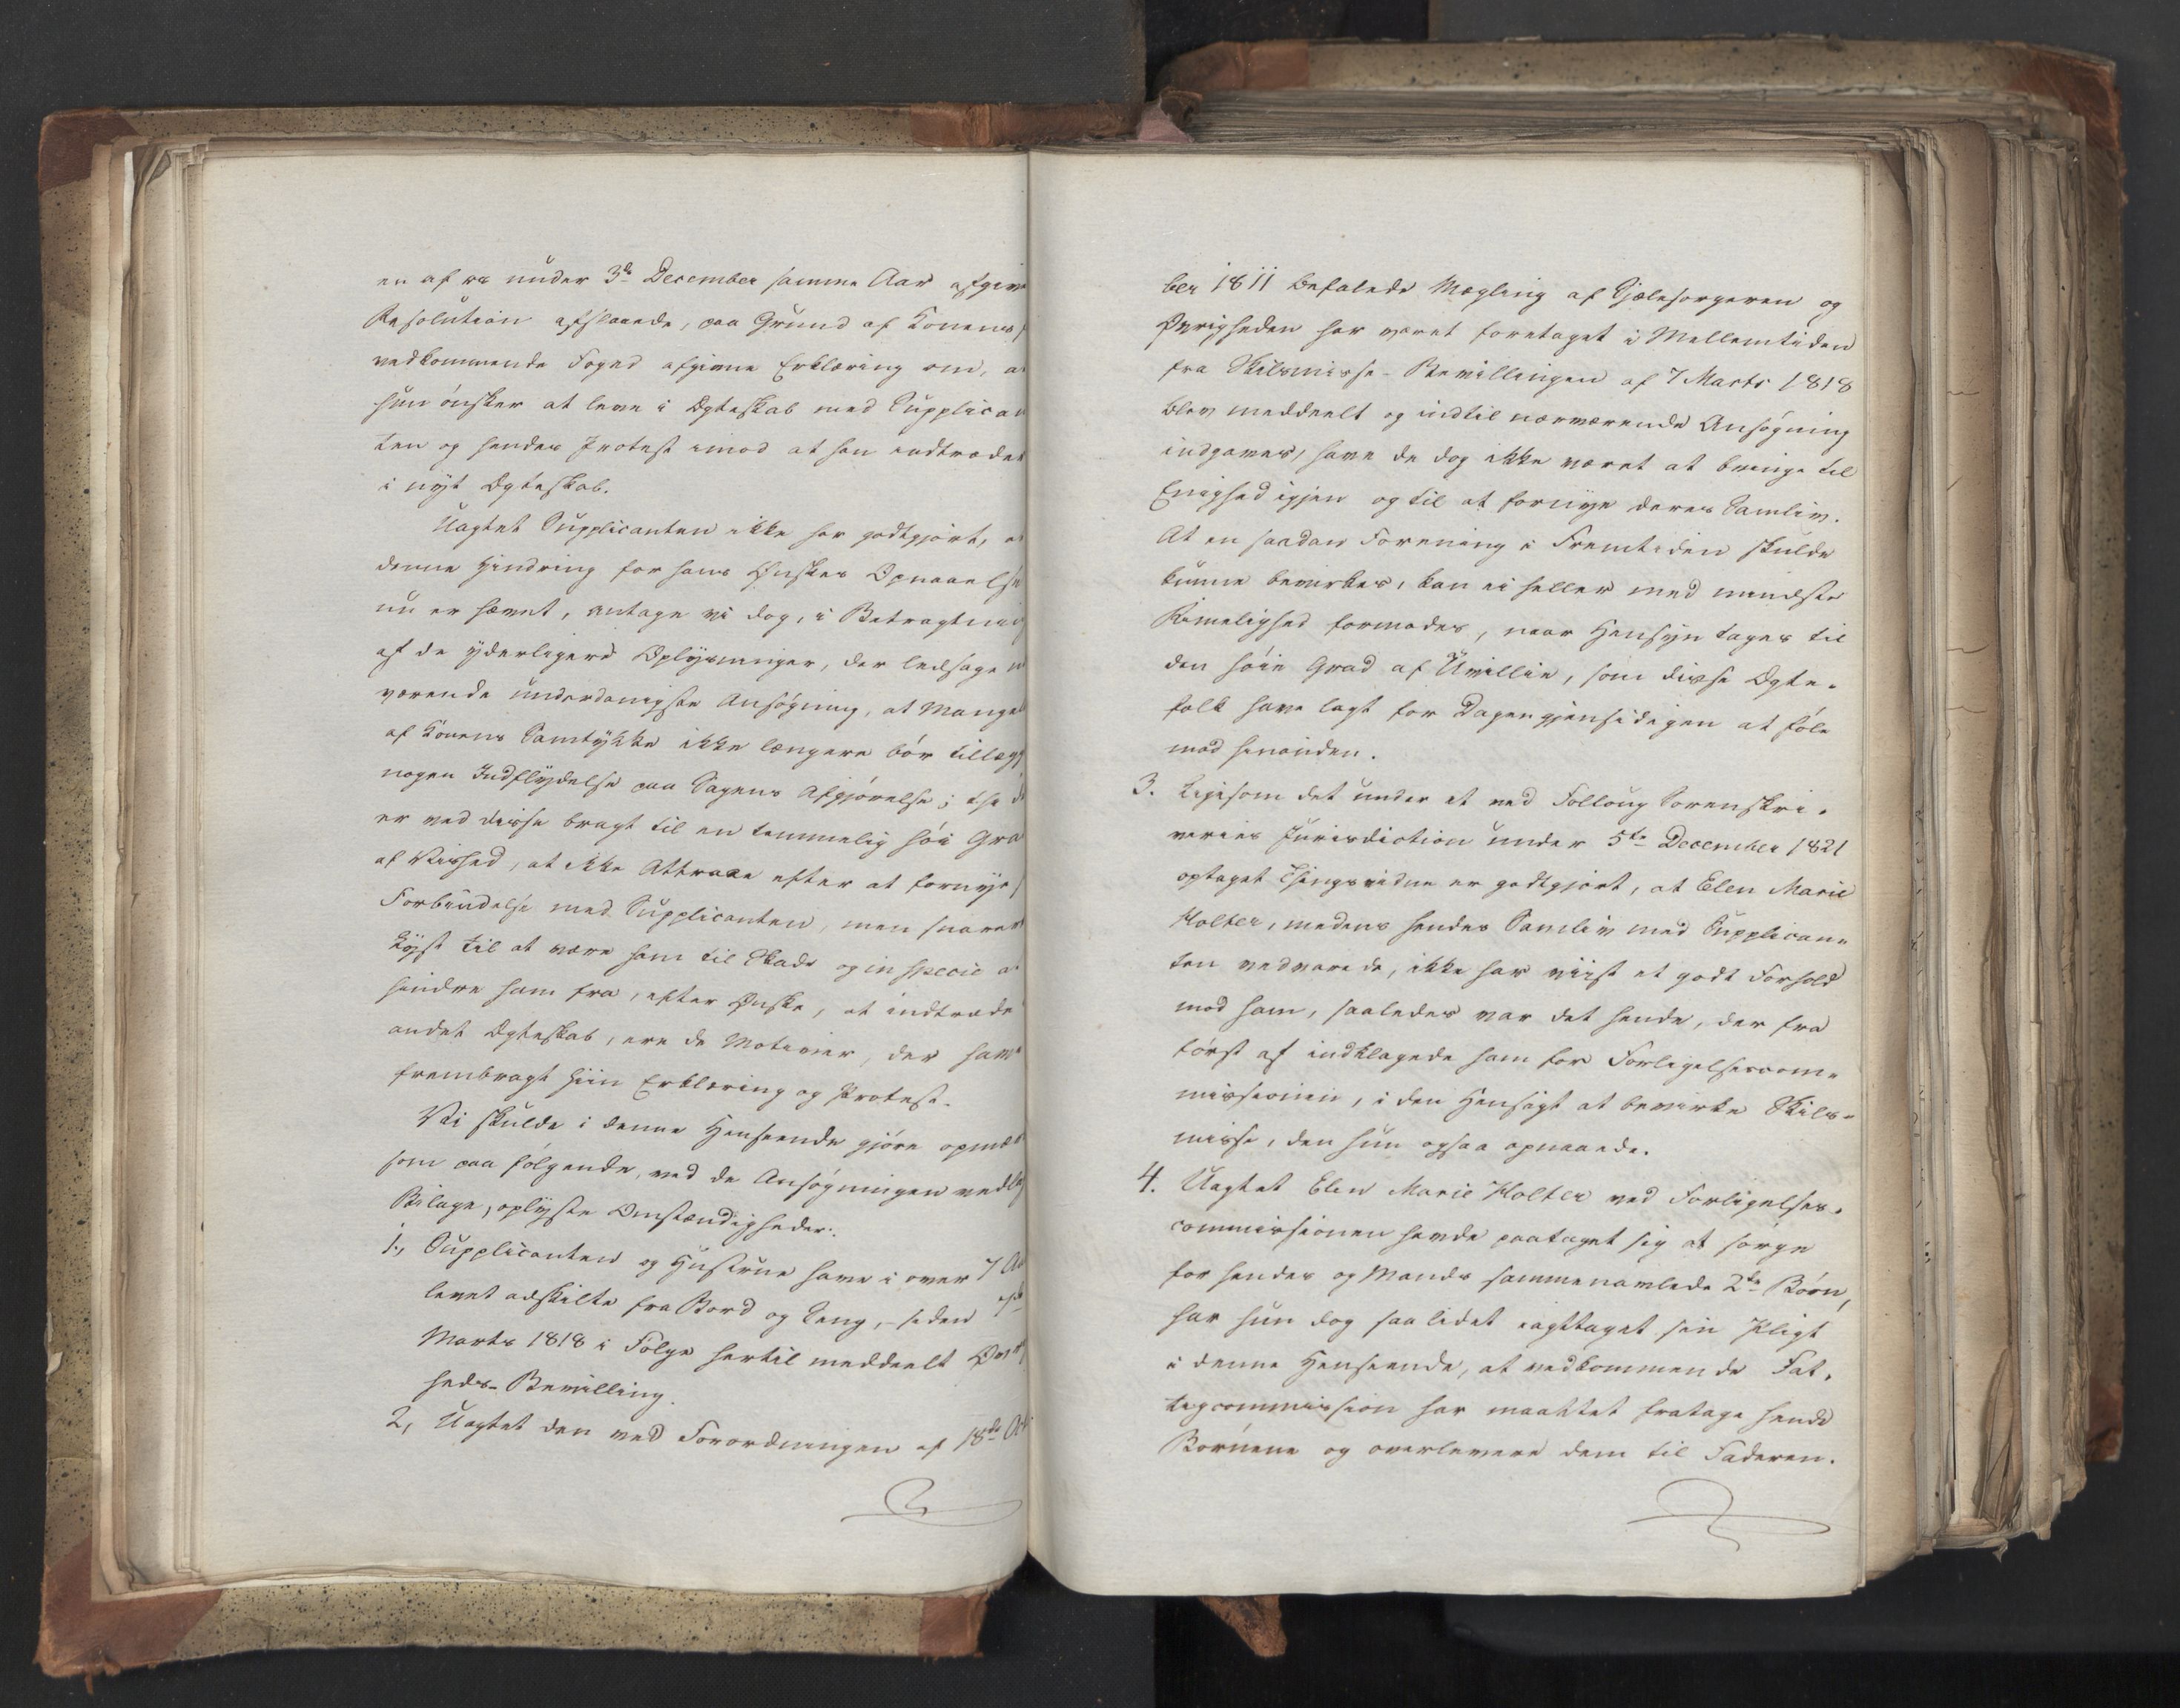 en af os under 3de December samme Aar afgiven
Resolution afslaaede, paa Grund af Konens
vedkommende Foged afgivne Erklæring om, at
hun ønsker at leve i Ægteskab med Supplican
ten og hendes Protest imod at han indtræder
i nyt Ægteskab.
Uagtet Supplicanten ikke har godtgjort, at
denne Hindring for hans Ønskes Opnaaelse
nu er hævet, antage vi dog, i Betragtning
af de yderligere Oplysninger, der ledsage n
værende underdanigste Ansøgning, at Mangel
af Konens Samtykke ikke længere bør tillægg
nogen Indflydelse paa Sagens Afgjørelse; thi d
er ved disse bragt til en temmelig høi Gra
af Vished, at ikke Attraae efter at fornye
Forbindelse med Supplicanten, men snarere
Lyst til at være ham til Skade og in specie at
hindre ham fra, efter Ønske, at indtræde
andet Ægteskab, ere de Motiver, der have
frembragt hiin Erklæring og Protest.
Vi skulde i denne Henseende gjøre opmær
som paa følgende, ved de Ansøgningen vedlag
Bilage, oplyste Omstændigheder:
1., Supplicanten og Hustrue have i over 7 Aa
levet adskilte fra Bord og Seng, siden 7de
Marts 1818 i Følge hertil meddeelt Øvrig
heds-Bevilling.
2, Uagtet den ved Forordningen af 18de Oct
ber 1811 befalede Mægling af Sjælesørgeren og
Øvrigheden har været foretaget i Mellemtiden
fra Skilsmisse-Bevillingen af 7 Marts 1818
blev meddeelt og indtil nærværende Ansøgning
indgaves, have de dog ikke været at bringe til
Enighed igjen og til at fornye deres Samliv.
At en saadan Forening i Fremtiden skulde
kunne bevirkes, kan ei heller med mindste
Rimelighed formodes, naar Hensyn tages til
den høie Grad af Uvillie, som disse Ægte-
folk have lagt for Dagen gjensidigen at føle
mod hinanden.
3. Ligesom det under et ved Folloug Sorenskri-
veries Jurisdiction under 5te December 1821
optaget Thingsvidne er godtgjort, at Elen Marie
Holter, medens hendes Samliv med Supplican-
ten vedvarede, ikke har viist et godt Forhold
mod ham, saaledes var det hende, der fra
først af indklagede ham for Forligelsescom-
missionen, i den Hensigt at bevirke Skils-
misse, den hun ogsaa opnaaede.
4. Uagtet Elen Marie Holter ved Forligelses-
commissionen havde paataget sig at sørge
for hendes og Mands sammenavlede 2de Børn,
har hun dog saa lidet iagttaget sin Pligt
i denne Henseende, at vedkommende Fat-
tigcommission har maattet fratage hende
Børnene og overlevere dem til Faderen.